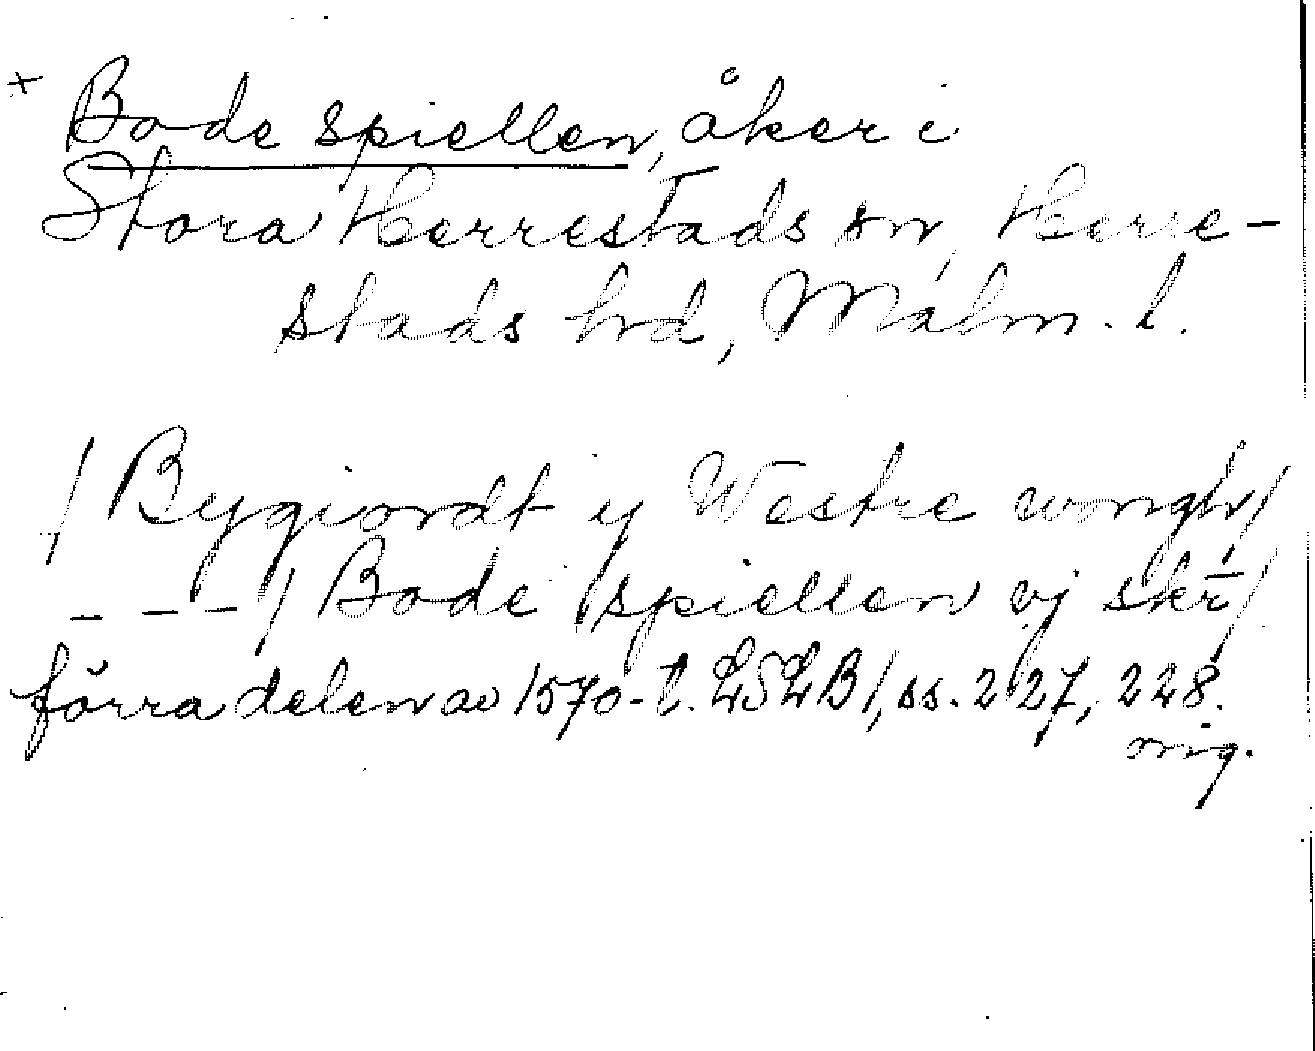 + Bode spiellen, åker i
Stora Herrestads sn, Herre-
stads hrd, Malm. l.
/ Bygiordt y Westre wongh/
- - - / Bode spiellen vj skr̄/
förra delen av 1570-t. LSLB 1, ss. 227, 228.
orig.